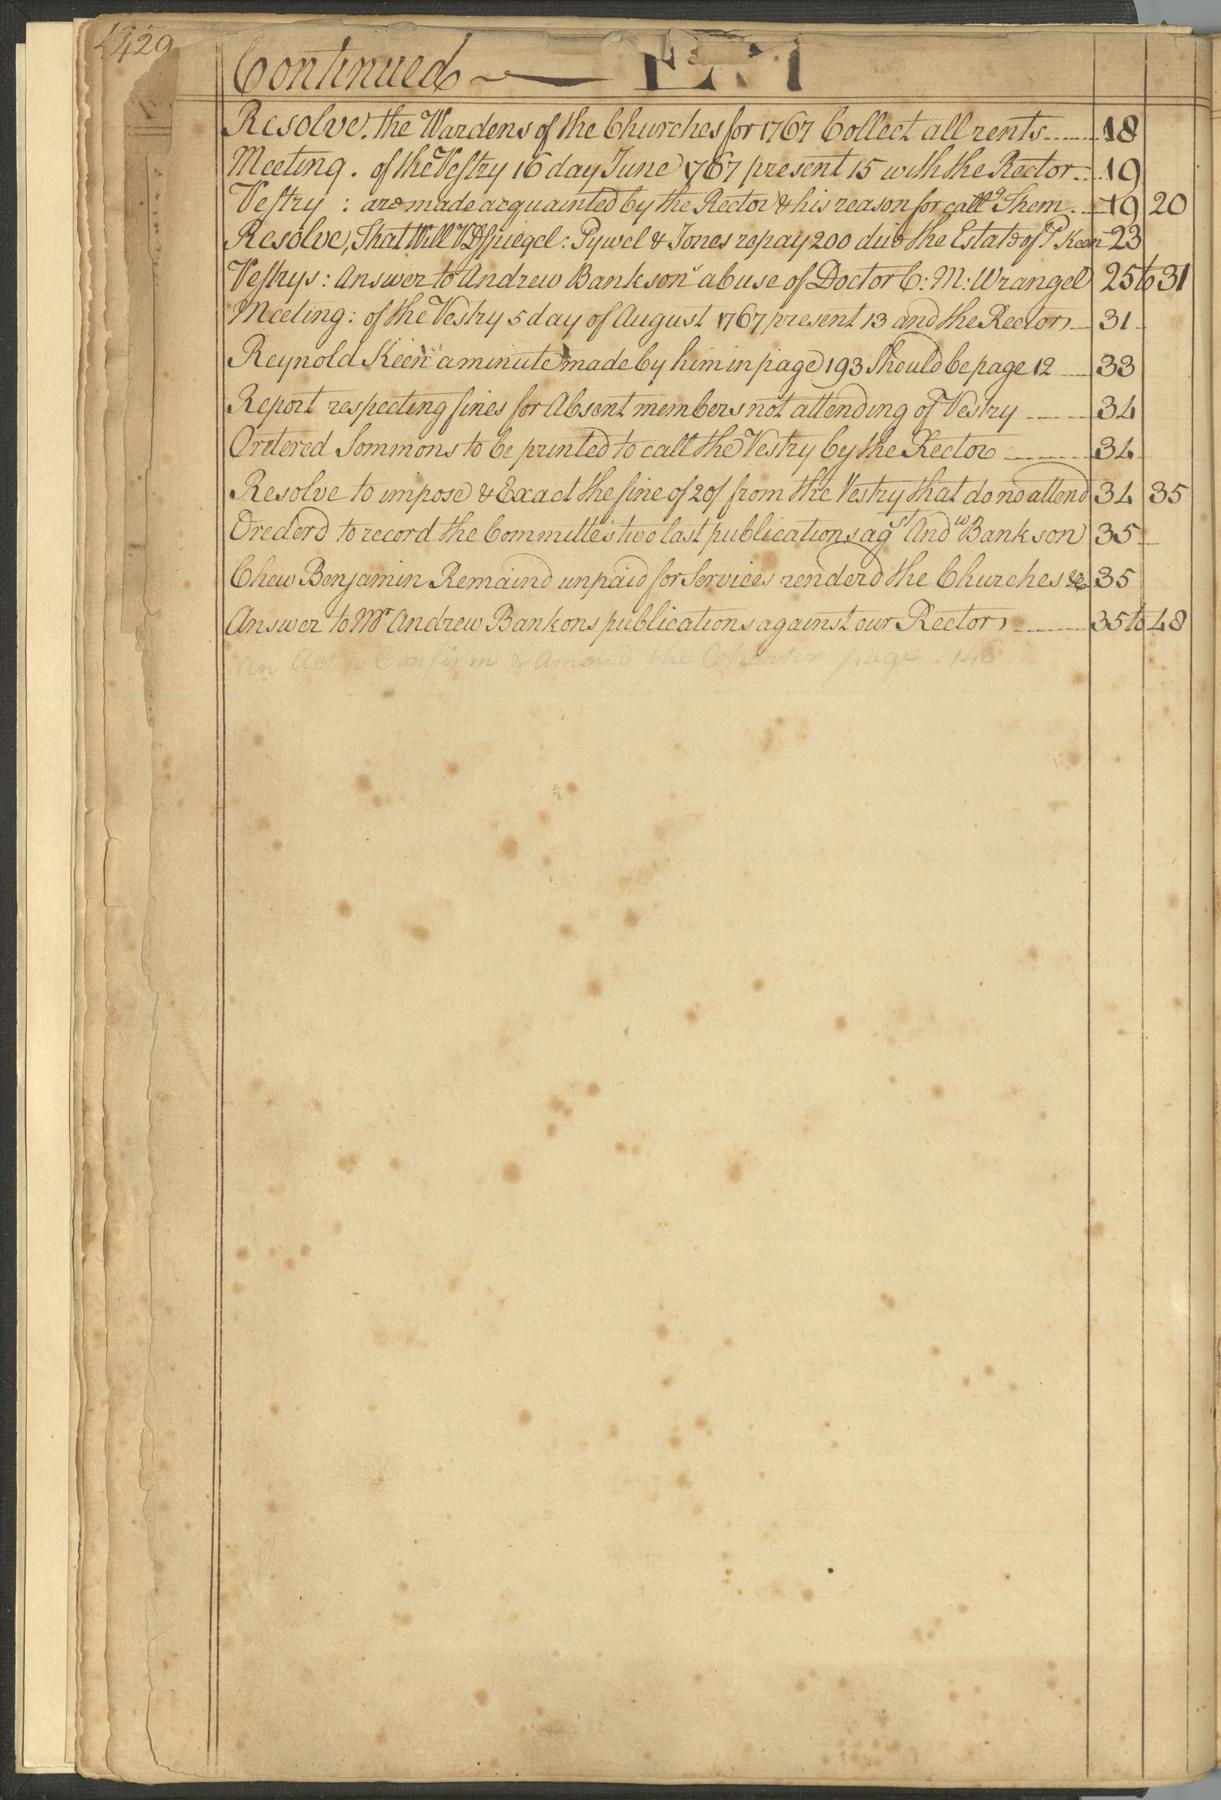 429
Continued
Resolve, the Wardens of the Churches for 1767 Collect all rents 18
Meeting. of the Vestry 16 day June 1767 present 15 with the Rector 19
Vestry : are made acquainted by the Rector & his reason for callg Them 19 20
Resolve, That Will VDSpiegel : Pywel & Jones repay 200 due the Estate of P Keen 23
Vestrys : Answer to Andrew Bankson's abuse of Doctor C: M: Wrangel 25 to 31
Meeting: of the Vestry 5 day of August 1767 present 13 and the Rector 31
Reynold Keen a minute made by him in page 193 should be page 12 33
Report respecting fines for Absent members not attending of Vestry 34
Ordered Sommons to be printed to call the Vestry by the Rector 34
Resolve to impose & Exact the fine of 20/ from the Vestry that do no attend 34 35
Orederd to record the Committe's two last publications agst Andw Bankson 35
Chew Benjamin Remaind unpaid for Services renderd the Churches &c 35
Answer to Mr Andrew Bankons publications against our Rector 35 to 48
An Act to Confirm & Amend the Charter page. 146